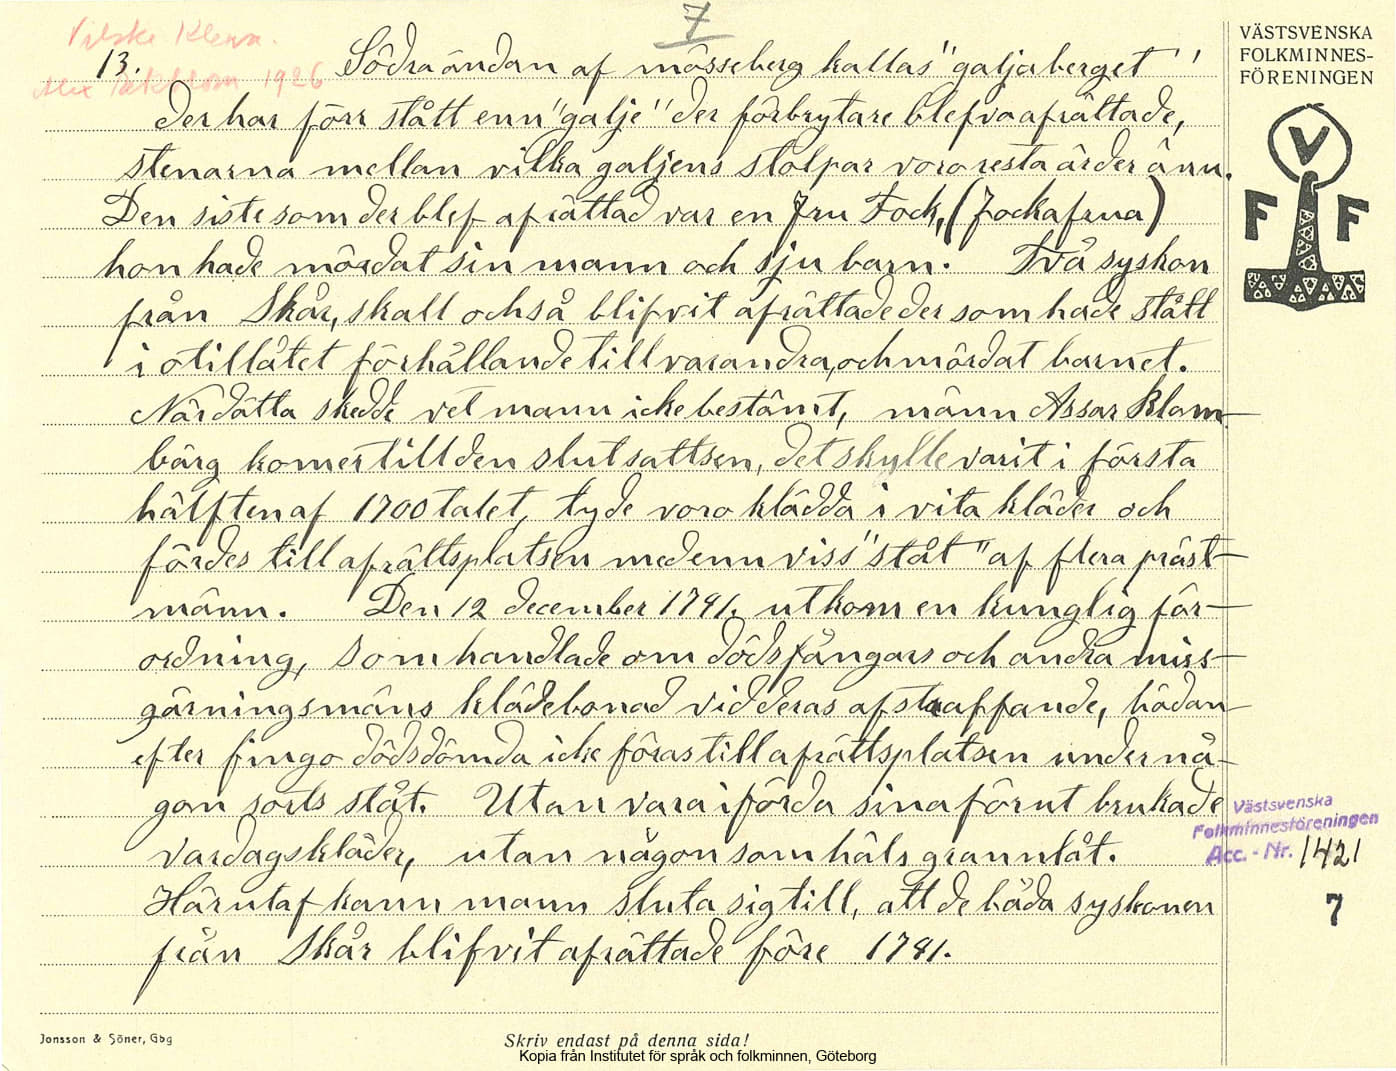 7
Vilske Kleva.
13. Södra ändan af mösseberg kallas "galjaberget"
1926
der har förr stått enn "galje" der förbrytare blefvo afrättade,
stenarna mellan vilka galjens stolpar voro resta är der ännu.
Den siste som der blef afrättad var en Fru Fock, (Fockafrua)
hon hade mördat sin mann och sju barn. Två syskon
från Skår, skall också blifvit afrättade der som hade stått
i otillåtet förhållande till varandra, och mördat barnet.
När dätta skedde vet mann icke bestämt, männ Assar Blom-
bärg komer till den slutsattsen, det skylle varit i första
hälften af 1700 talet, ty de voro klädda i vita kläder och
fördes till afrättsplatsen med enn viss "ståt" af flera präst-
männ. Den 12 december 1741. utkom en kunglig för-
ordning, som handlade om dödsfångars och andra miss-
gärningsmäns klädebonad vid deras afstraffande, hädan-
efter fingo dödsdömda icke föras till afrättsplatsen under nå-
gon sorts ståt. Utan vara iförda sina förut brukade
vardagskläder, utan någon som häls grannlåt.
Härutaf kann mann sluta sig till, att de båda syskonen
från Skår blifvit afrättade före 1741.
VÄSTSVENSKA
FOLKMINNES-
FÖRENINGEN
V
F F
Västsvenska
Folkminnesföreningen
Acc.-Nr. 1421
7
Jonsson & Söner, Gbg
Skriv endast på denna sida!
Kopia från Institutet för språk och folkminnen, Göteborg